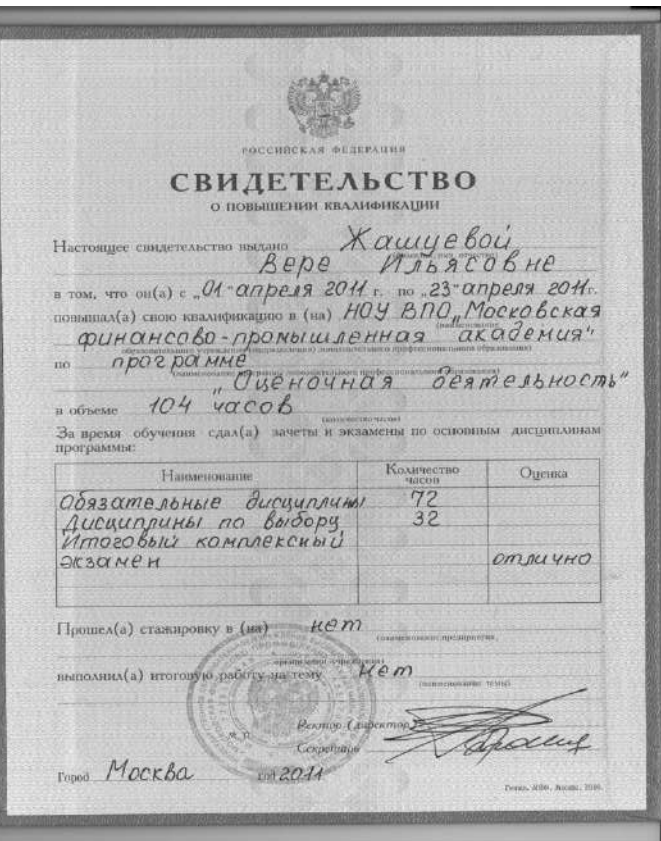 РОССИЙСКАЯ ФЕДЕРАЦИЯ
СВИДЕТЕЛЬСТВО
О ПОВЫШЕНИИ КВАЛИФИКАЦИИ
Настоящее свидетельство выдано Жашуевой
(фамилия, имя, отчество)
Вере Ильясовне
в том, что он(а) с „01“ апреля 2011 г. по „23“ апреля 2011 г.
повышал(а) свою квалификацию в (на) НОУ ВПО „Московская
(наименование
финансово-промышленная академия“
образовательного учреждения (подразделения) дополнительного профессионального образования)
по программе
(наименование программы дополнительного профессионального образования)
„Оценочная деятельность“
в объеме 104 часов
(количество часов)
За время обучения сдал(а) зачеты и экзамены по основным дисциплинам
программы:
Наименование Количество часов Оценка
Обязательные дисциплины 72
Дисциплины по выбору 32
Итоговый комплексный
экзамен отлично
Прошел(а) стажировку в (на) нет
(наименование предприятия,
организации, учреждения)
выполнил(а) итоговую работу на тему нет
(наименование темы)
М. П.
Ректор (директор)
Секретарь
Город Москва год 2011